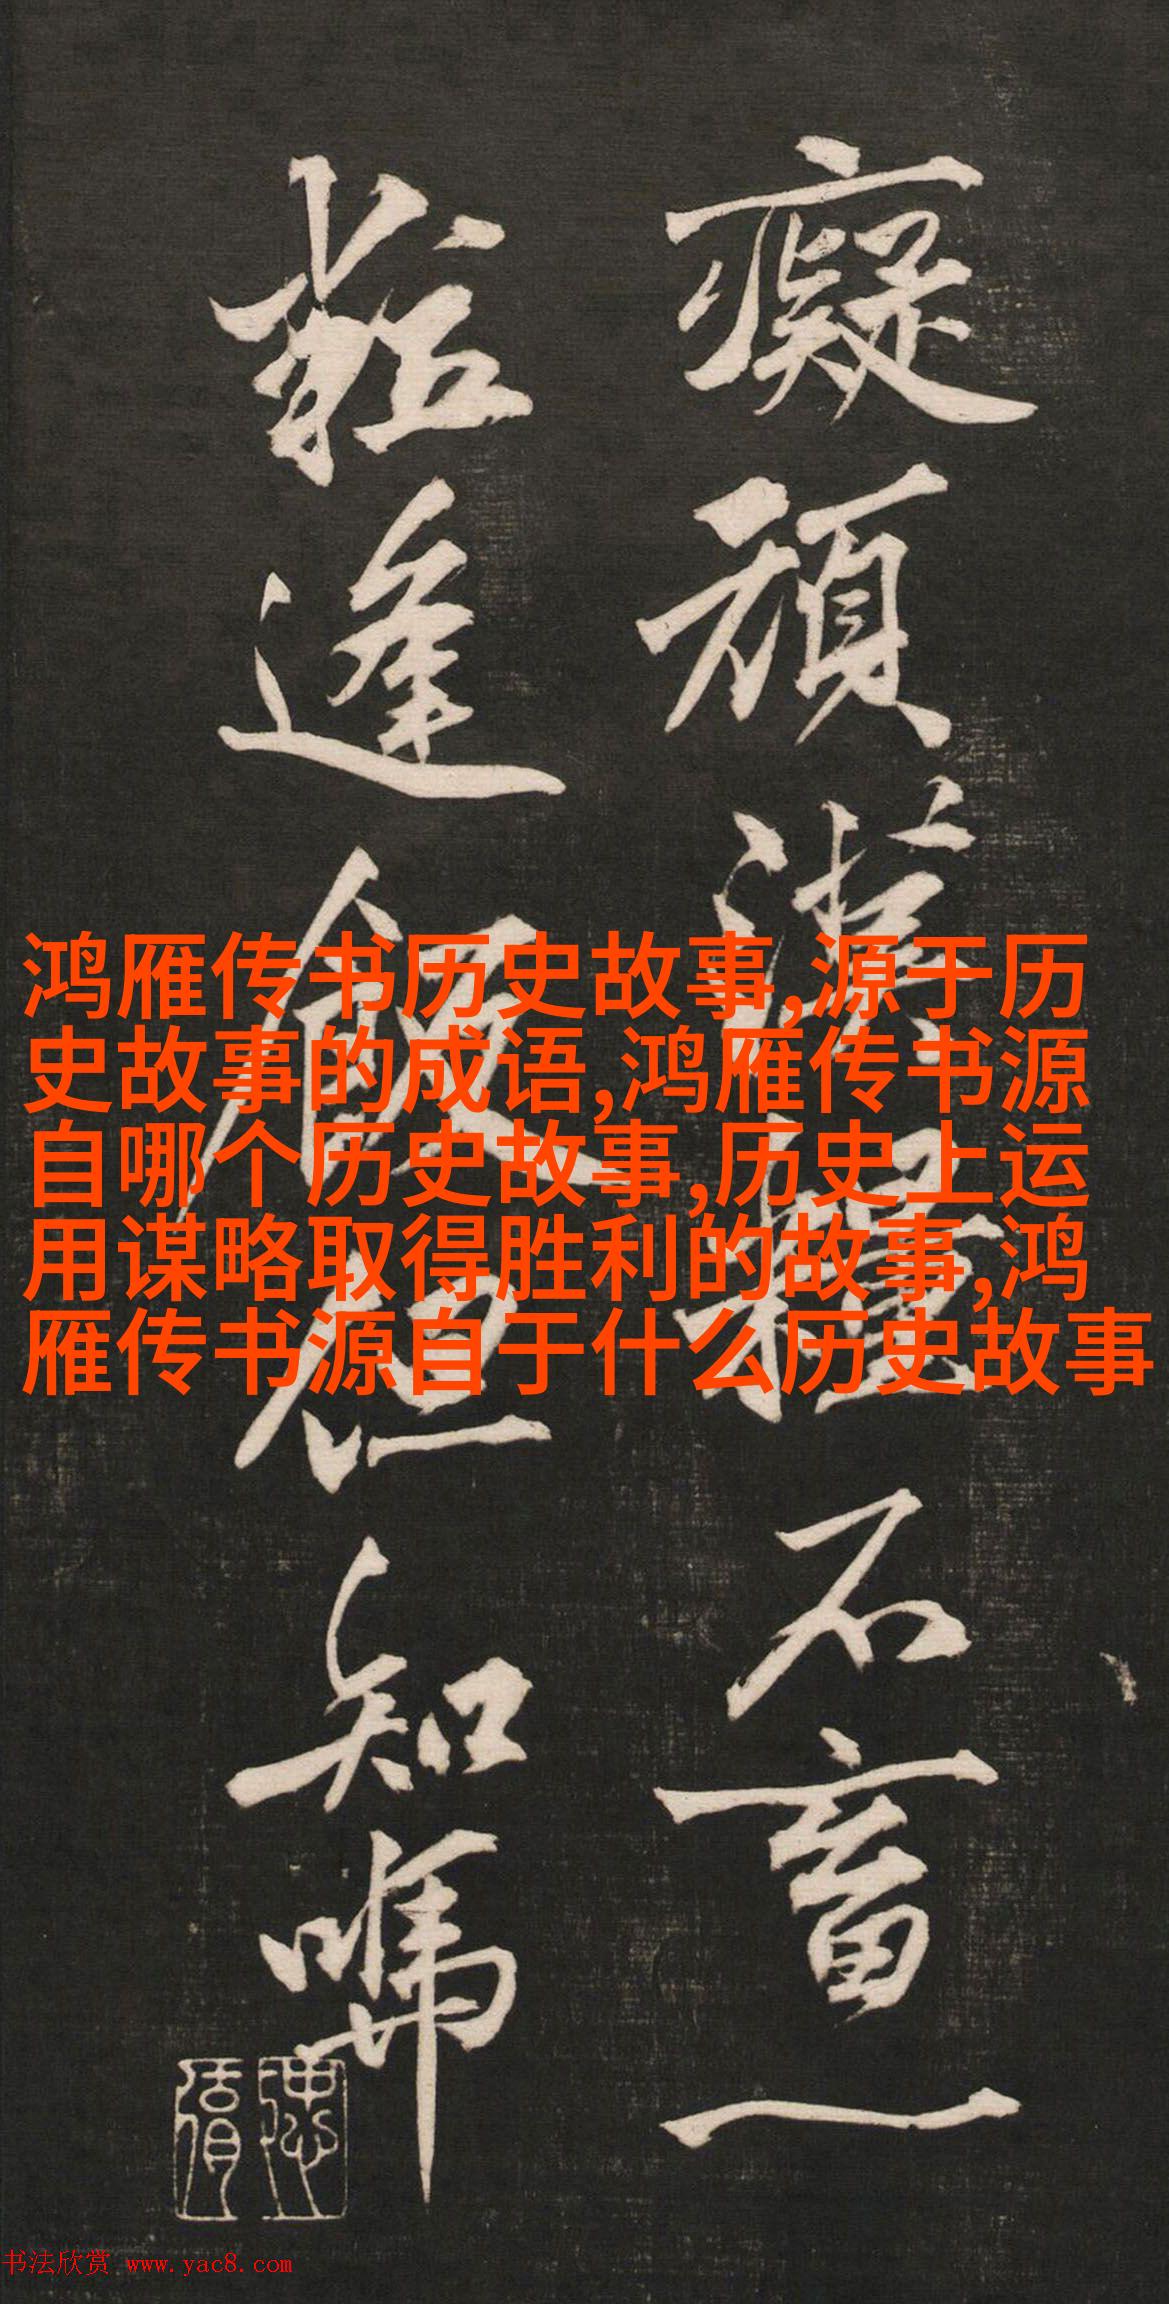 癡頑漢糧不畜一
粒逢飯但知
鸿雁传书历史故事,源于历
史故事的成语,鸿雁传书源
自哪个历史故事,历史上运
用谋略取得胜利的故事,鸿
雁传书源自于什么历史故事
书法欣赏 www.yac8.com